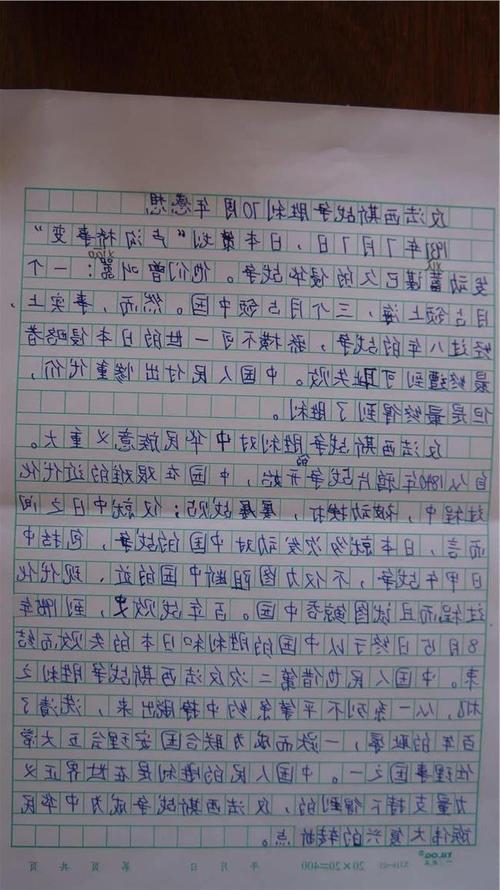 反法西斯战争胜利70周年感想
1937年7月7日,日本策划“卢沟桥事变”
xu xiao
发动蓄谋已久的侵华战争。他们曾叫嚣:一个
月占领上海,三个月占领中国。然而,事实上、
经过八年的战争,骄横不可一世的日本侵略者
最终遭到可耻失败。中国人民付出惨重代价,
但是最终得到了胜利。
反法西斯战争胜利对中华民族意义重大。
自从1840年鸦片战争的开始,中国在艰难的近代化
过程中,被动挨打,屡屡战败;仅就中日之间
而言,日本就多次发动对中国的战争,包括中
日甲午战争,不仅力图阻断中国的近、现代化
过程而且试图鲸吞中国。百年战败史,到1945年
8月15日终于以中国的胜利和日本的失败而结
束。中国人民也借第二次反法西斯战争胜利之
机,从一系列不平等条约中挣脱出来,洗清了
百年的耻辱,一跃而成为联合国安理会五大常
任理事国之一。中国人民的胜利是在世界正义
力量支持下得到的,反法西斯战争成为中华民
族伟大复兴的转折点。
20×20=400 年 月 日 第 页 共 页